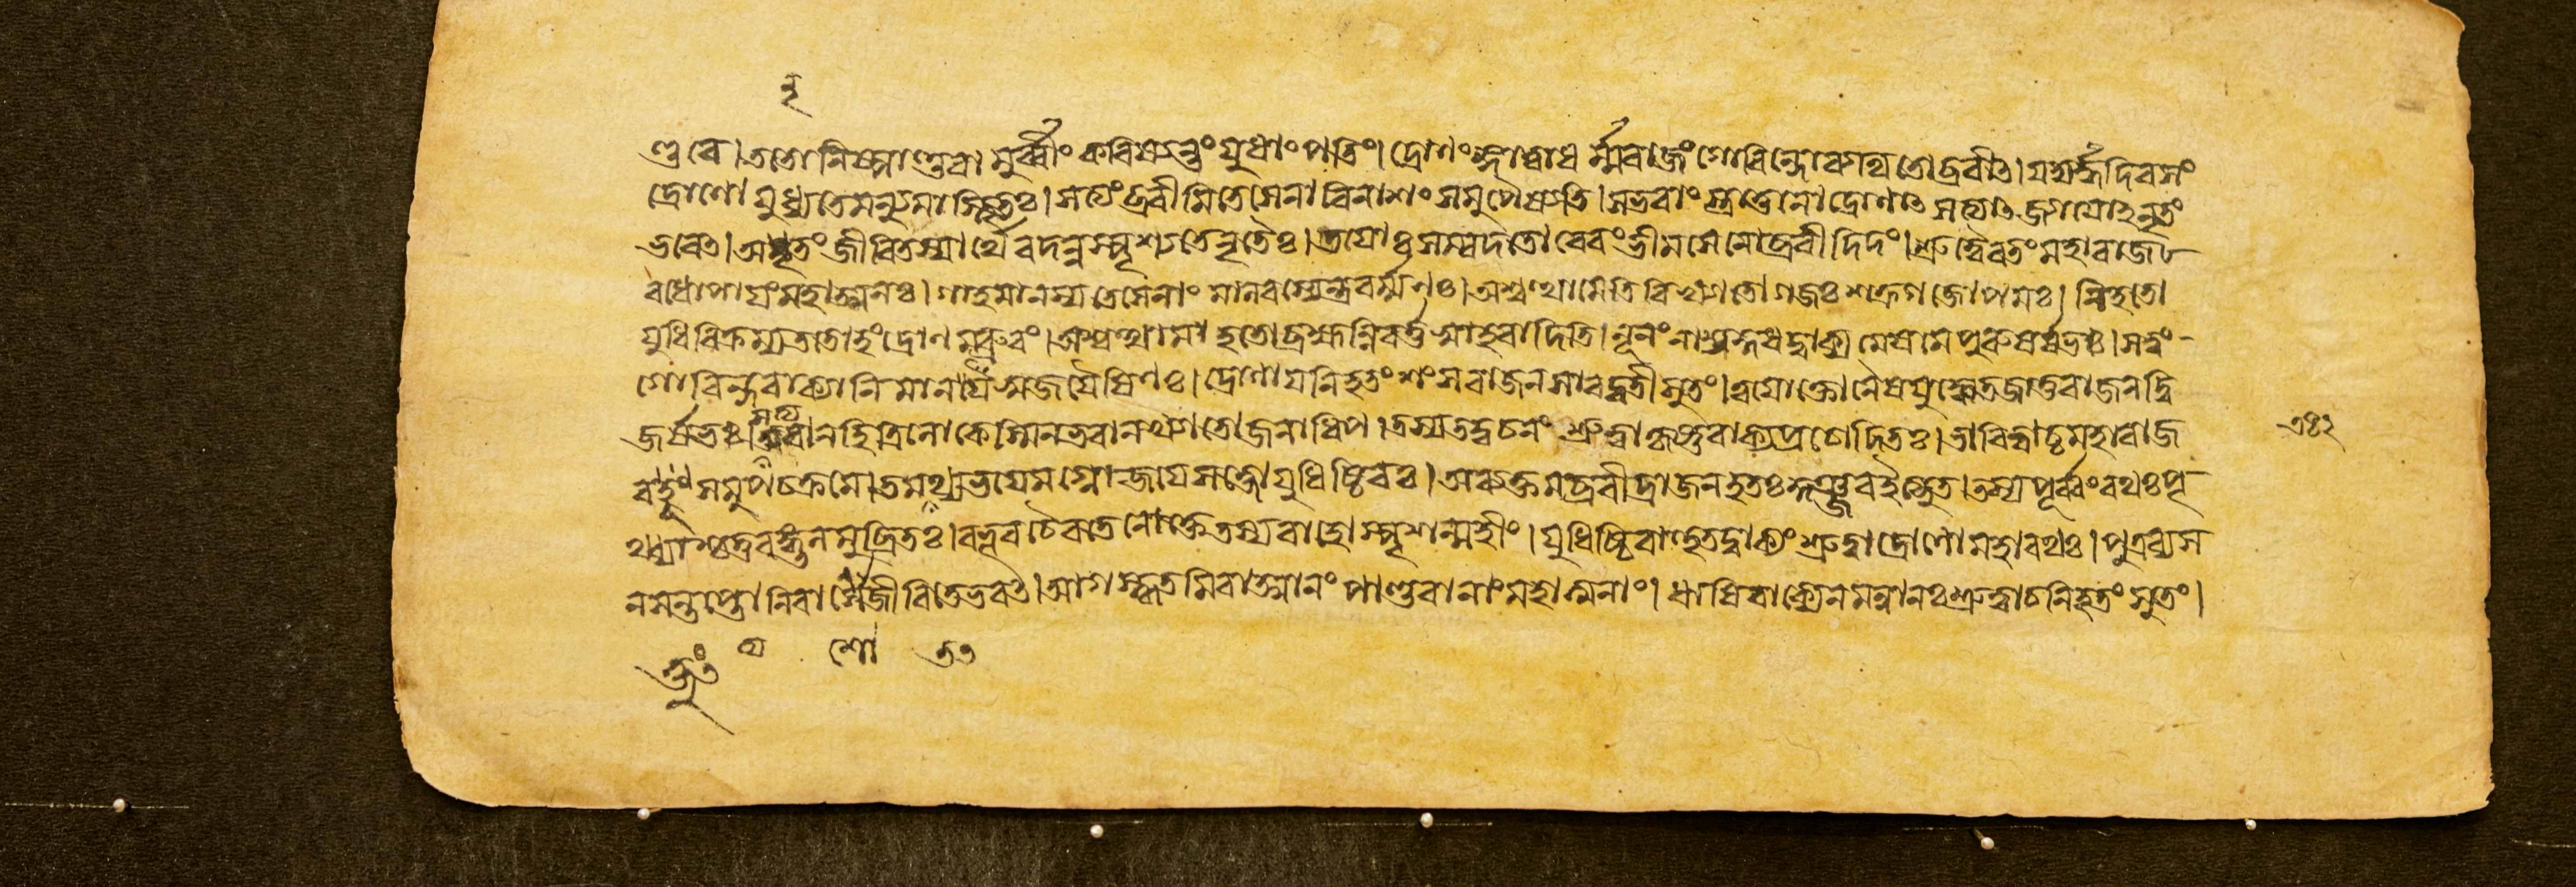 ণ্ডবে। ততো নিষ্পাণ্ডবামুর্ব্বীং করিষ্যন্তং যুধাং পতিং। দ্রোণং জ্ঞাত্বা ধর্ম্মরাজং গোবিন্দো ব্যথিতোব্রবীৎ। যদ্যর্দ্ধদিবসং
দ্রোণো যুধ্যতে মন্যুমাস্থিতঃ। সত্যং ব্রবীমি তে সেনা বিনাশং সমুপৈষ্যতি। স ভবাংস্ত্রাতু নো দ্রোণাৎ সত্যাৎ জ্যায়োঽনৃতং
ভবেৎ। অনৃতং জীবিতস্যার্থে বদন্ন স্পৃশ্যতেনৃতৈঃ। তয়োঃ সম্বদতোরেবং ভীমসেনোব্রবীদিদং। শ্রুত্বৈবতং মহারাজ
বধোপায়ং মহাত্মনঃ। গাহমানস্য তে সেনাং মালবস্যেন্দ্রবর্ম্মণঃ। অশ্বত্থামেতি বিখ্যাতো গজঃ শক্রগজোপমঃ। নিহতো
যুধি বিক্রম্য ততোহং দ্রোণমব্রুবং। অশ্বত্থামা হতো ব্রহ্মন্নিবর্ত্তস্বাহবাদিতি। নূনং নাশ্রদ্দধদ্বাক্যমেষ মে পুরুষর্ষভঃ। স ত্বং
গোবিন্দবাক্যানি মানয়স্ব জয়ৈষিণঃ। দ্রোণায় নিহতং শংস রাজন সারদ্বতীসুতং। ত্বয়োক্তো নৈষ যুধ্যেত জাতু রাজন দ্বি
জর্ষভঃ। সত্যবান হি ত্রিলোকেস্মিন ভবান খ্যাতো জনাধিপ। তস্য তদ্বচনং শ্রুত্বা কৃষ্ণবাক্যপ্রচোদিতঃ। ভাবিত্বাচ্চ মহারাজ
বক্তুং সমুপচক্রমে। তমতথ্যভয়ে মগ্নো জয়ে সক্তো যুধিষ্ঠিরঃ। অব্যক্তমব্রবীদ্রাজন হতঃ কুঞ্জর ইত্যুত। তস্য পূর্ব্বং রথঃ পৃ
থ্ব্যাশ্চতুরঙ্গুলমুচ্ছ্রিতঃ। বভূব তেনোক্তে তস্য বাহাস্পৃশন্মহীং। যুধিষ্ঠিরাত্তদ্বাক্যং শ্রুত্বা দ্রোণো মহারথঃ। পুত্রব্যস
নসন্তপ্তো নিরাশো জীবিতেভবৎ। আগস্কৃতমিবাত্মানং পাণ্ডবানাং মহাত্মনাং। ঋষিবাক্যেন মন্বানঃ শ্রুত্বা চ নিহতং সুতং।
ক্তুং থ্য শো ত্ত